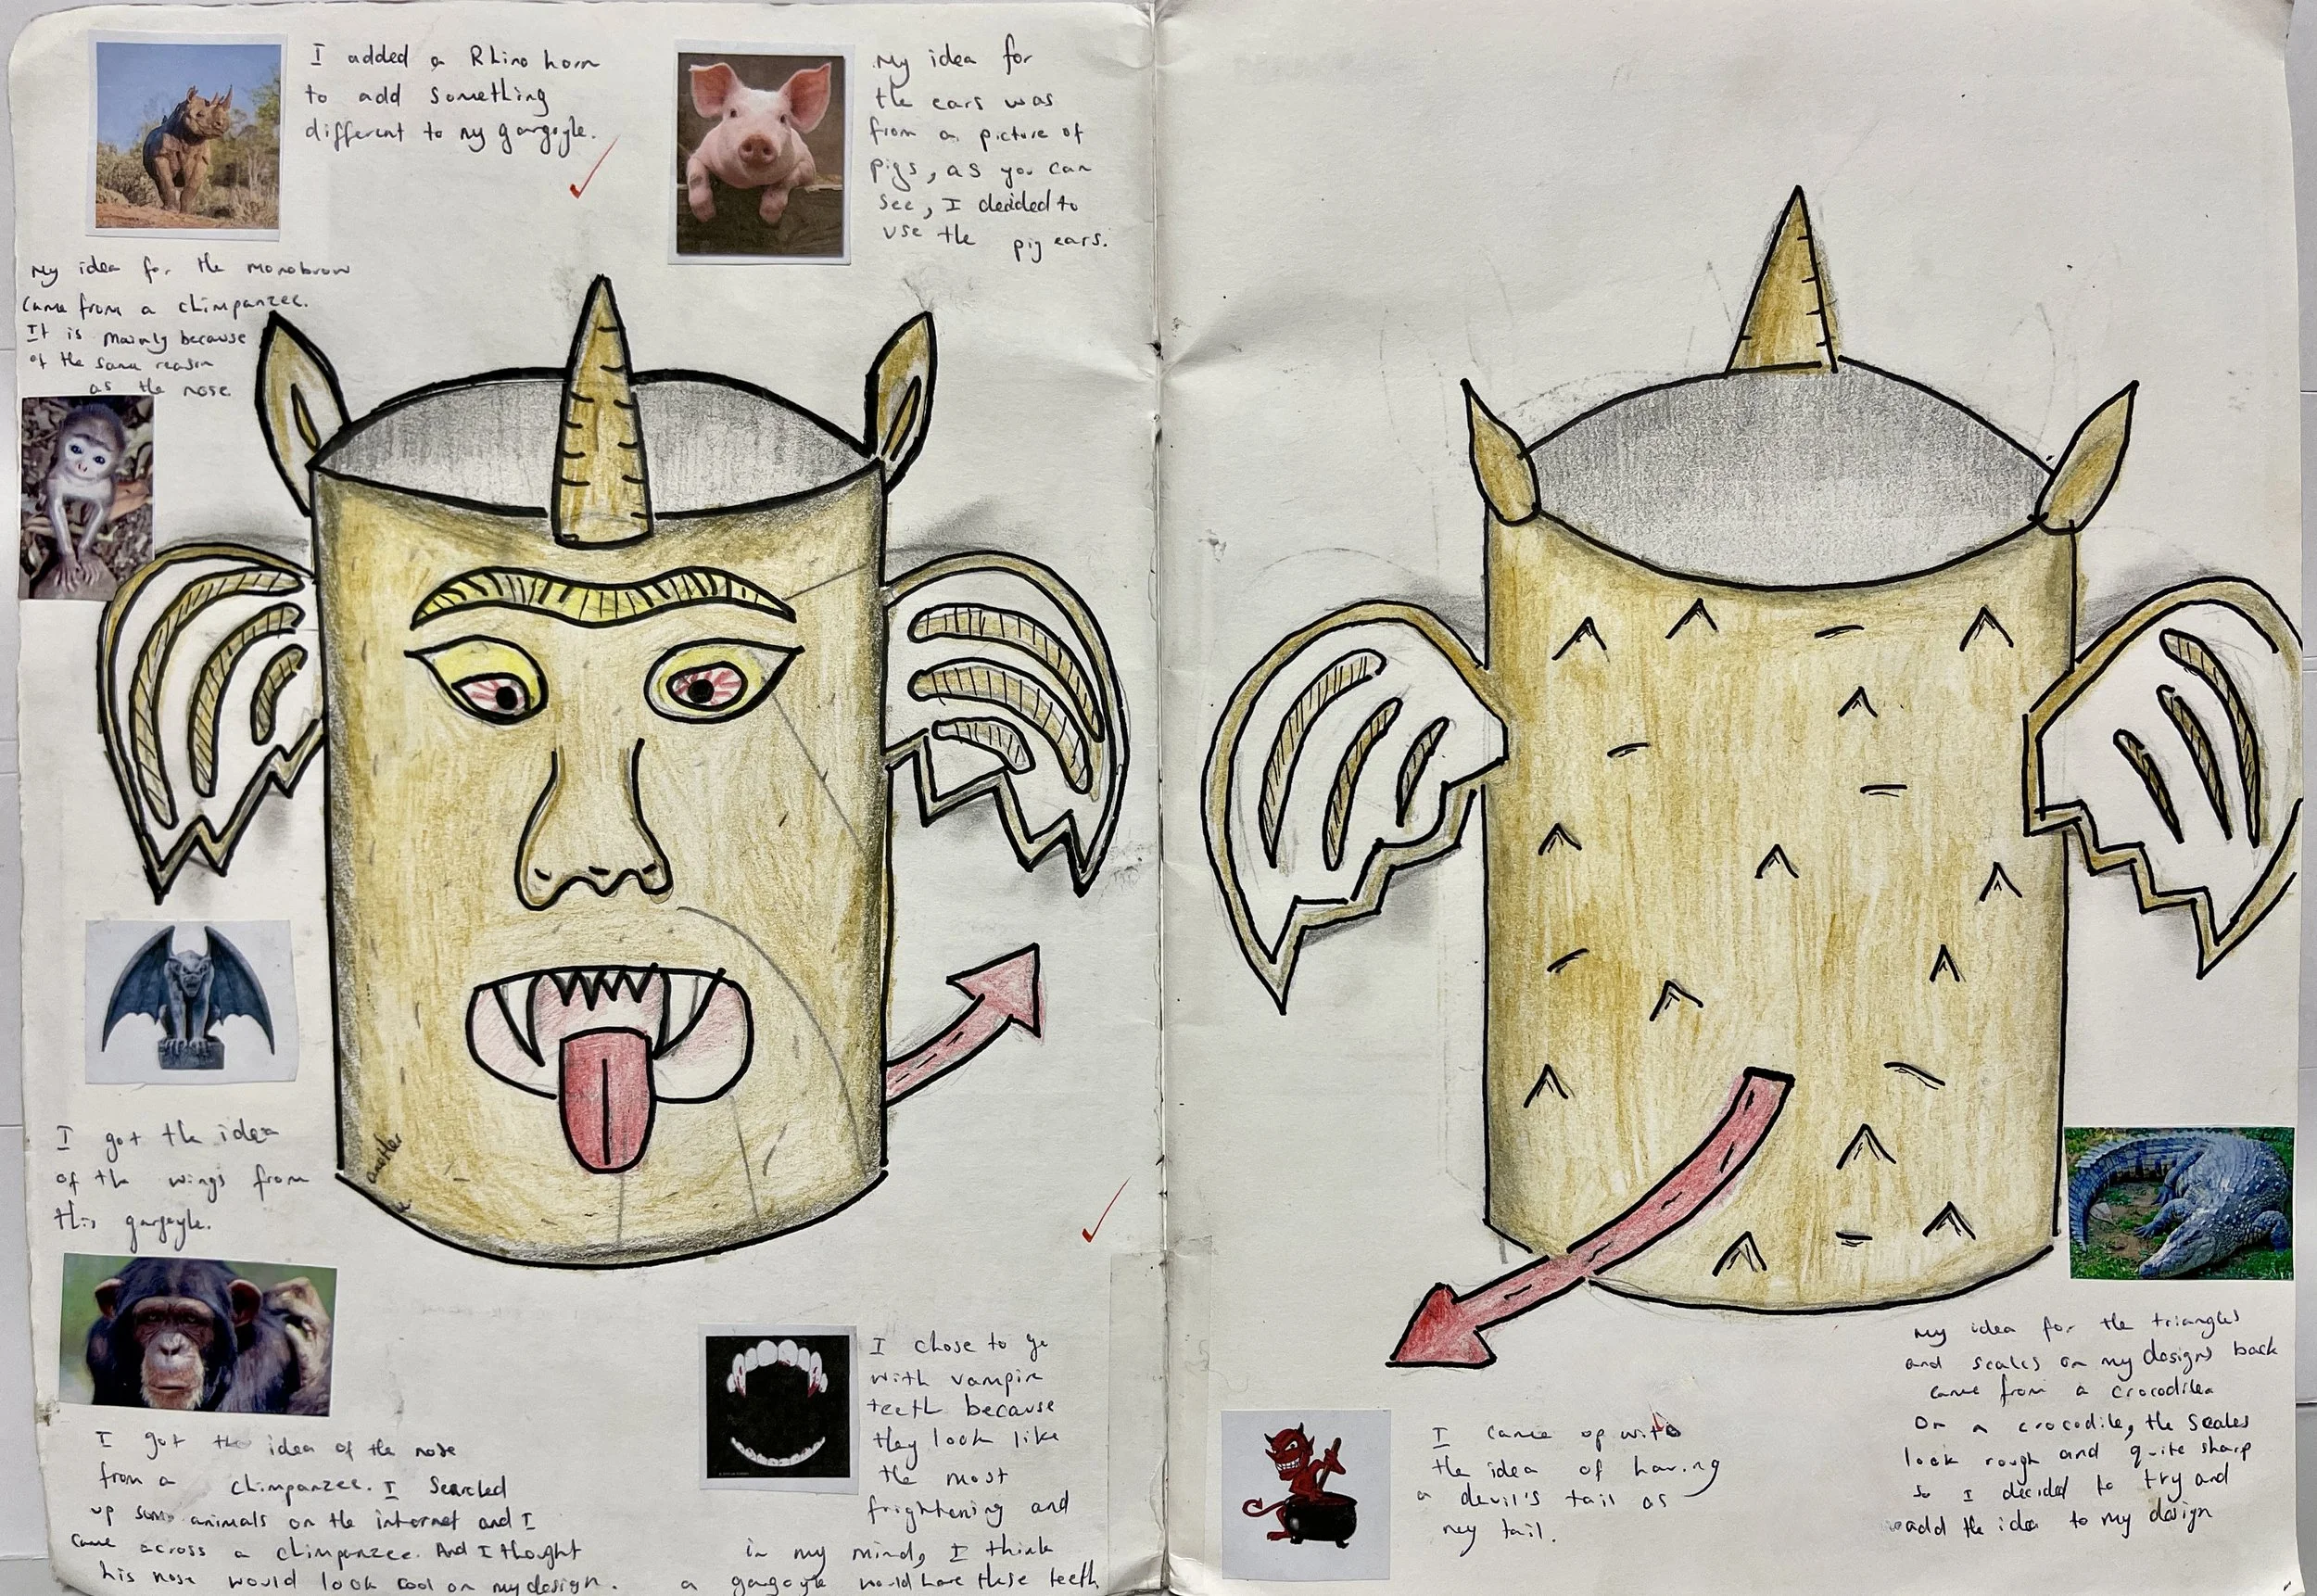 I added a Rhino horn
to add something
different to my gargoyle.
My idea for
the ears was
from a picture of
pigs, as you can
see, I decided to
use the pig ears.
My idea for the monobrow
came from a chimpanzee.
It is mainly because
of the same reason
as the nose.
I got the idea
of the wings from
this gargoyle.
another
I got the idea of the nose
from a chimpanzee. I searched
up some animals on the internet and I
came across a chimpanzee. And I thought
his nose would look cool on my design.
I chose to go
with vampire
teeth because
they look like
the most
frightening and
in my mind, I think
a gargoyle would have these teeth.
I came up with
the idea of having
a devil's tail as
my tail.
My idea for the triangles
and scales on my designs back
came from a crocodile
On a crocodile, the scales
look rough and quite sharp
so I decided to try and
add the idea to my design